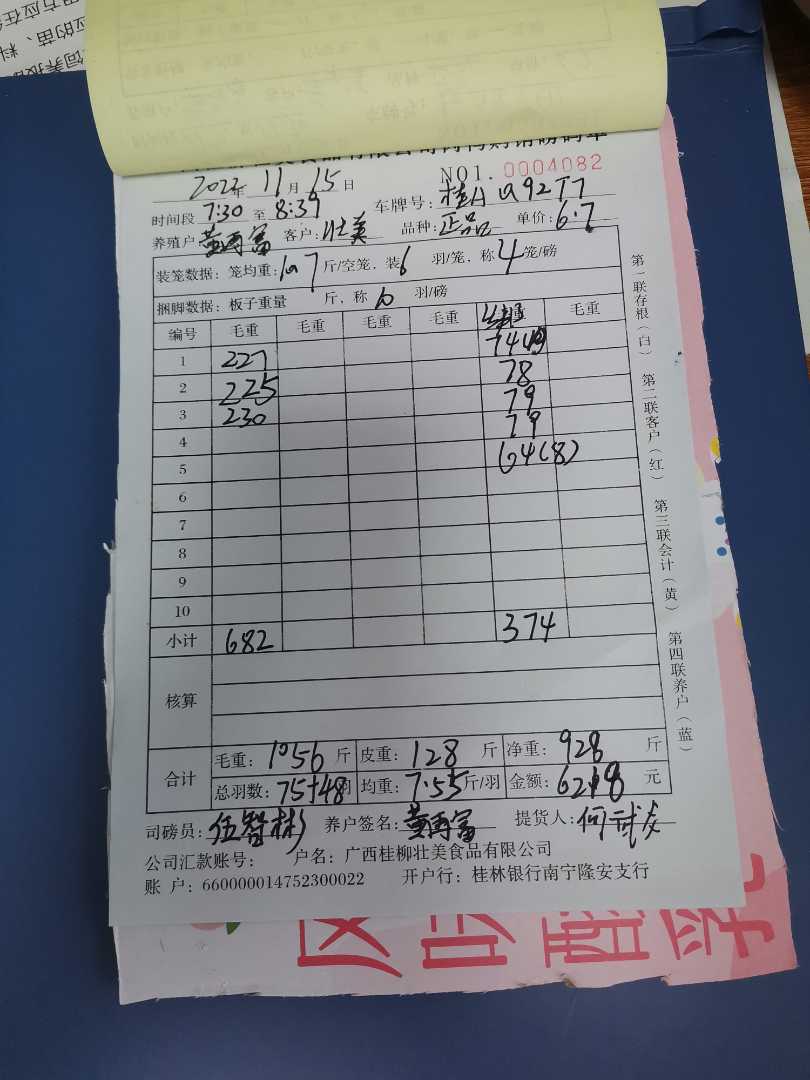 NO1.0004082
2022年11月15日
时间段 7:30 至 8:39 车牌号: 桂A U92T7
养殖户 黄再富 客户: 壮美 品种: 正品 单价: 6.7
装笼数据: 笼均重: 斤/空笼, 装6 羽/笼, 称4笼/磅
捆脚数据: 板子重量 斤, 称10 羽/磅
编号 毛重 毛重 毛重 毛重 毛重
1 227
2 225 78
3 230 79
4 79
5 64(8)
6
7
8
9
10
小计 682 374
核算
合计 毛重: 1056 斤 皮重: 128 斤 净重: 928 斤
总羽数: 75+48羽 均重: 7.55斤/羽 金额: 元
司磅员: 伍智彬 养户签名: 黄再富 提货人:
公司汇款账号: 户名: 广西桂柳壮美食品有限公司
账 户: 660000014752300022 开户行: 桂林银行南宁隆安支行
第一联存根(白) 第二联客户(红) 第三联会计(黄) 第四联养户(蓝)